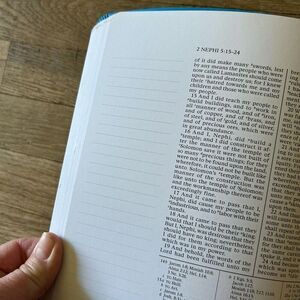 2 NEPHI 5:15–24
of it did make many swords, lest
by any means the people who were
now called Lamanites should come
upon us and destroy us; for I knew
their hatred towards me and my
children and those who were called
my people.
15 And I did teach my people to
build buildings, and to work in
all manner of wood, and of iron,
and of copper, and of brass, and
of steel, and of gold, and of silver,
and of precious ores, which were
in great abundance.
16 And I, Nephi, did build a
temple; and I did construct it af-
ter the manner of the temple of
Solomon save it were not built of
so many precious things; for they
were not to be found upon the land,
wherefore, it could not be built like
unto Solomon's temple. But the
manner of the construction was
like unto the temple of Solomon;
and the workmanship thereof was
exceedingly fine.
17 And it came to pass that I,
Nephi, did cause my people to be
industrious, and to labor with their
hands.
18 And it came to pass that they
would that I should be their king.
But I, Nephi, was desirous that they
should have no king; nevertheless,
I did for them according to that
which was in my power.
19 And behold, the words of the
had been fulfilled unto my